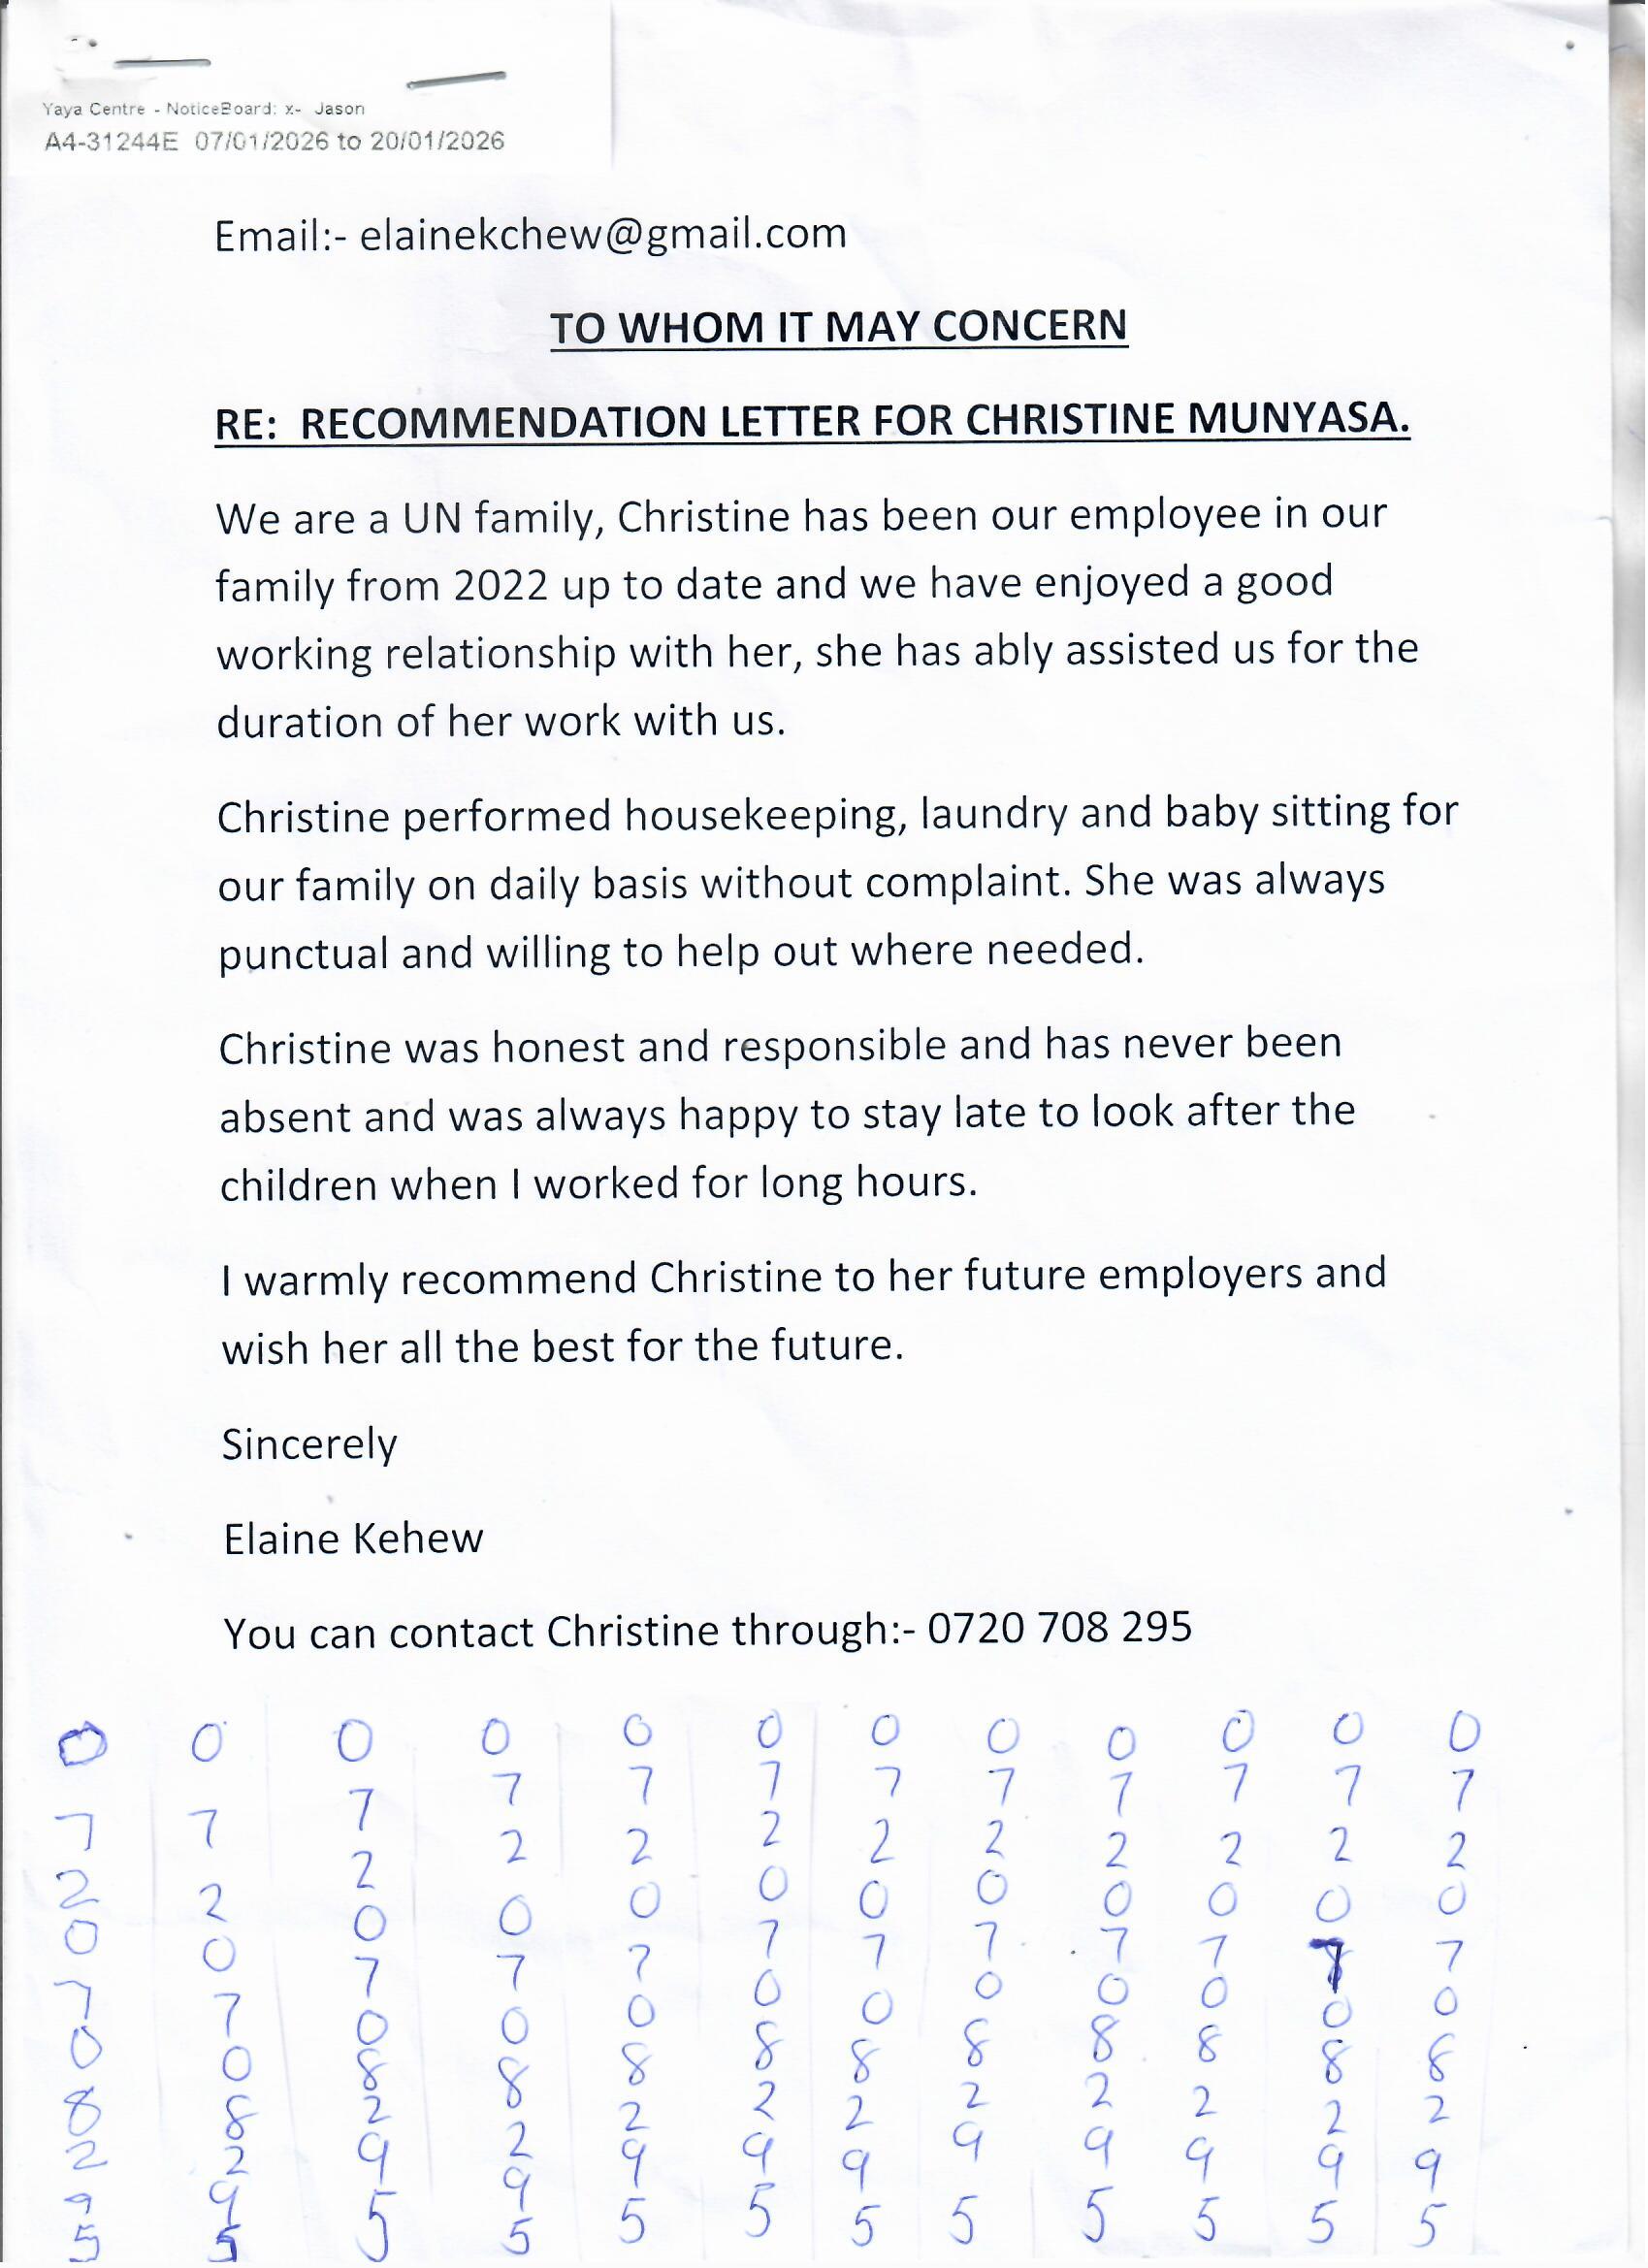 Yaya Centre - NoticeBoard: x- Jason
A4-31244E 07/01/2026 to 20/01/2026
Email:- elainekchew@gmail.com
TO WHOM IT MAY CONCERN
RE: RECOMMENDATION LETTER FOR CHRISTINE MUNYASA.
We are a UN family, Christine has been our employee in our
family from 2022 up to date and we have enjoyed a good
working relationship with her, she has ably assisted us for the
duration of her work with us.
Christine performed housekeeping, laundry and baby sitting for
our family on daily basis without complaint. She was always
punctual and willing to help out where needed.
Christine was honest and responsible and has never been
absent and was always happy to stay late to look after the
children when I worked for long hours.
I warmly recommend Christine to her future employers and
wish her all the best for the future.
Sincerely
Elaine Kehew
You can contact Christine through:- 0720 708 295
0720708295
0720708295
0720708295
0720708295
0720708295
0720708295
0720708295
0720708295
0720708295
0720708295
0720708295
0720708295